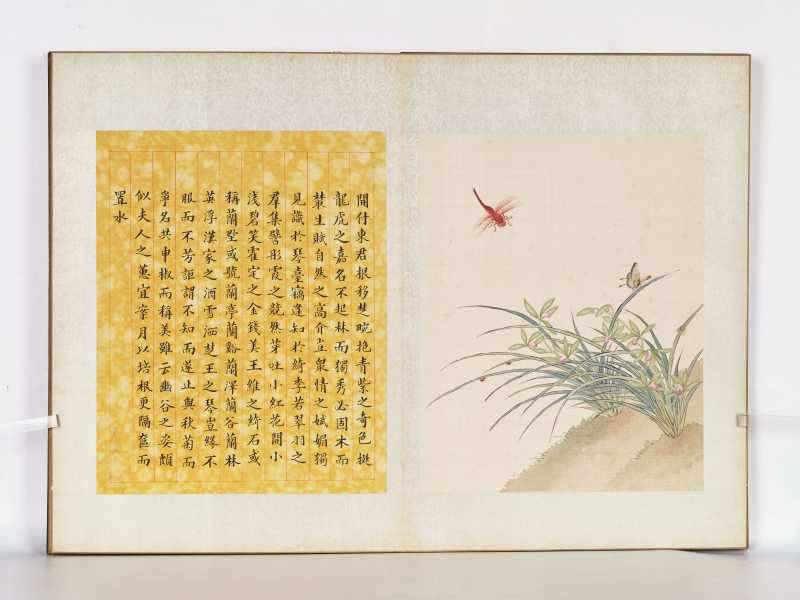 開付東君根移楚畹抱青紫之奇色挺
龍虎之嘉名不起林而獨秀必固本而
叢生賦自然之高介豈衆情之娬媚獨
見識於琴臺竊逢知於綺季若翠羽之
羣集譬彤霞之競然芽吐小紅花開小
淺碧笑霍定之金錢美王維之綺石或
稱蘭墅或號蘭亭蘭谿蘭澤蘭谷蘭林
英浮漢家之酒雪洒楚王之琴豈緣不
服而不芳詎謂不知而遂止與秋菊而
爭名共申椒而稱美雖云幽谷之姿頗
似夫人之蕙宜葉月以培根更隔盆而
置水